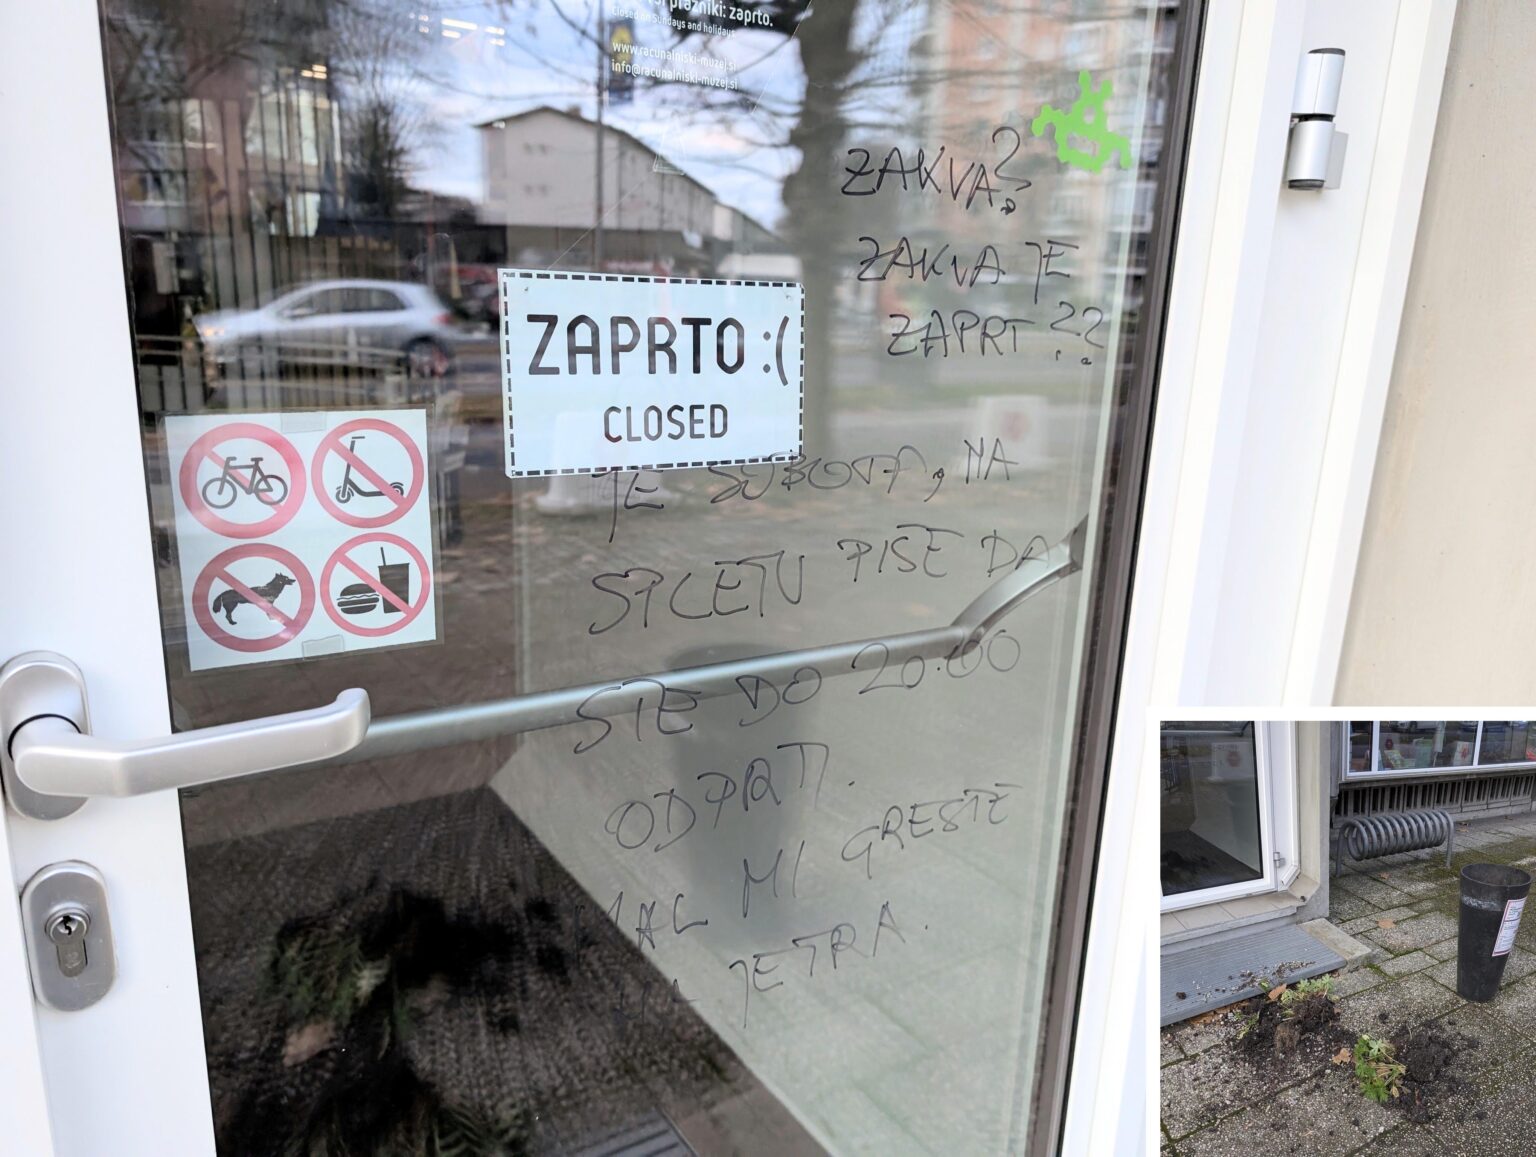 prazniki: zaprto.
Closed on Sundays and holidays
www.racunalniski-muzej.si
info@racunalniski-muzej.si
ZAKVA?
ZAKVA JE
ZAPRT??
ZAPRTO :(
CLOSED
JE SOBOTA, NA
SPLETU PIŠE DA
STE DO 20:00
ODPRTI.
MAL MI GRESTE
NA JETRA.